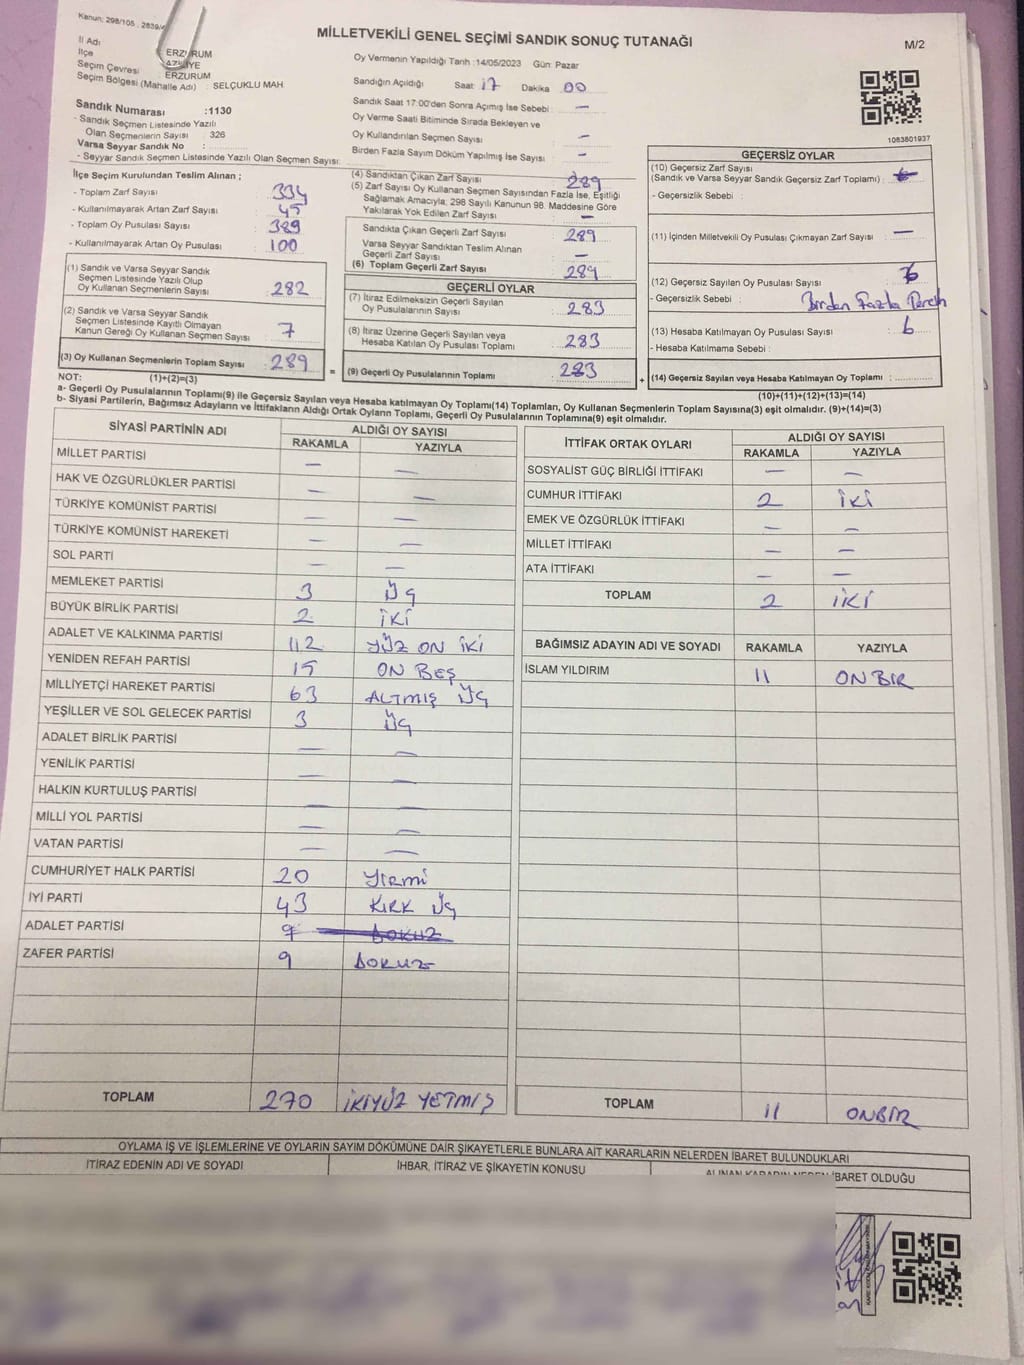 Kanun: 298/105 , 2839/
MİLLETVEKİLİ GENEL SEÇİMİ SANDIK SONUÇ TUTANAĞI
M/2
İl Adı ERZURUM
İlçe AZİZİYE
Seçim Çevresi ERZURUM
Seçim Bölgesi (Mahalle Adı) : SELÇUKLU MAH
Sandık Numarası :1130
- Sandık Seçmen Listesinde Yazılı
Olan Seçmenlerin Sayısı : 326
Varsa Seyyar Sandık No :
- Seyyar Sandık Seçmen Listesinde Yazılı Olan Seçmen Sayısı:
Oy Vermenin Yapıldığı Tarih :14/05/2023 Gün: Pazar
Sandığın Açıldığı Saat 17 Dakika 00
Sandık Saat 17:00'den Sonra Açımış İse Sebebi : —
Oy Verme Saati Bitiminde Sırada Bekleyen ve
Oy Kullandırılan Seçmen Sayısı : —
Birden Fazla Sayım Döküm Yapılmış İse Sayısı : —
1083801937
İlçe Seçim Kurulundan Teslim Alınan ;
- Toplam Zarf Sayısı : 334
- Kullanılmayarak Artan Zarf Sayısı : 45
- Toplam Oy Pusulası Sayısı : 389
- Kullanılmayarak Artan Oy Pusulası : 100
(1) Sandık ve Varsa Seyyar Sandık
Seçmen Listesinde Yazılı Olup
Oy Kullanan Seçmenlerin Sayısı 282
(2) Sandık ve Varsa Seyyar Sandık
Seçmen Listesinde Kayıtlı Olmayan
Kanun Gereği Oy Kullanan Seçmen Sayısı : 7
(3) Oy Kullanan Seçmenlerin Toplam Sayısı : 289
(1)+(2)=(3)
(4) Sandıktan Çıkan Zarf Sayısı : 289
(5) Zarf Sayısı Oy Kullanan Seçmen Sayısından Fazla İse, Eşitliği
Sağlamak Amacıyla, 298 Sayılı Kanunun 98. Maddesine Göre
Yakılarak Yok Edilen Zarf Sayısı : —
Sandıkta Çıkan Geçerli Zarf Sayısı : 289
Varsa Seyyar Sandıktan Teslim Alınan
Geçerli Zarf Sayısı : —
(6) Toplam Geçerli Zarf Sayısı : 289
GEÇERLİ OYLAR
(7) İtiraz Edilmeksizin Geçerli Sayılan
Oy Pusulalarının Sayısı : 283
(8) İtiraz Üzerine Geçerli Sayılan veya
Hesaba Katılan Oy Pusulası Toplamı : 283
= (9) Geçerli Oy Pusulalarının Toplamı : 283
GEÇERSİZ OYLAR
(10) Geçersiz Zarf Sayısı
(Sandık ve Varsa Seyyar Sandık Geçersiz Zarf Toplamı) :
- Geçersizlik Sebebi :
(11) İçinden Milletvekili Oy Pusulası Çıkmayan Zarf Sayısı : —
(12) Geçersiz Sayılan Oy Pusulası Sayısı : 6
- Geçersizlik Sebebi : Birden Fazla Tercih
(13) Hesaba Katılmayan Oy Pusulası Sayısı : 6
- Hesaba Katılmama Sebebi :
+ (14) Geçersiz Sayılan veya Hesaba Katılmayan Oy Toplamı :
(10)+(11)+(12)+(13)=(14)
NOT:
a- Geçerli Oy Pusulalarının Toplamı(9) ile Geçersiz Sayılan veya Hesaba katılmayan Oy Toplamı(14) Toplamları, Oy Kullanan Seçmenlerin Toplam Sayısına(3) eşit olmalıdır. (9)+(14)=(3)
b- Siyasi Partilerin, Bağımsız Adayların ve İttifakların Aldığı Ortak Oyların Toplamı, Geçerli Oy Pusulalarının Toplamına(9) eşit olmalıdır.
SİYASİ PARTİNİN ADI ALDIĞI OY SAYISI
RAKAMLA YAZIYLA
MİLLET PARTİSİ — —
HAK VE ÖZGÜRLÜKLER PARTİSİ — —
TÜRKİYE KOMÜNİST PARTİSİ — —
TÜRKİYE KOMÜNİST HAREKETİ — —
SOL PARTİ — —
MEMLEKET PARTİSİ 3 üç
BÜYÜK BİRLİK PARTİSİ 2 iKi
ADALET VE KALKINMA PARTİSİ 112 YÜZ ON iKi
YENİDEN REFAH PARTİSİ 15 ON BEŞ
MİLLİYETÇİ HAREKET PARTİSİ 63 ALTMIŞ üç
YEŞİLLER VE SOL GELECEK PARTİSİ 3 üç
ADALET BİRLİK PARTİSİ — —
YENİLİK PARTİSİ — —
HALKIN KURTULUŞ PARTİSİ — —
MİLLİ YOL PARTİSİ — —
VATAN PARTİSİ — —
CUMHURİYET HALK PARTİSİ 20 Yirmi
İYİ PARTİ 43 KIRK üç
ADALET PARTİSİ 9 DOKUZ
ZAFER PARTİSİ 9 DOKUZ
TOPLAM 270 İKİYÜZ YETMİŞ
İTTİFAK ORTAK OYLARI ALDIĞI OY SAYISI
RAKAMLA YAZIYLA
SOSYALİST GÜÇ BİRLİĞİ İTTİFAKI — —
CUMHUR İTTİFAKI 2 iKi
EMEK VE ÖZGÜRLÜK İTTİFAKI — —
MİLLET İTTİFAKI — —
ATA İTTİFAKI — —
TOPLAM 2 iKi
BAĞIMSIZ ADAYIN ADI VE SOYADI RAKAMLA YAZIYLA
İSLAM YILDIRIM 11 ON BİR
TOPLAM 11 ONBİR
OYLAMA İŞ VE İŞLEMLERİNE VE OYLARIN SAYIM DÖKÜMÜNE DAİR ŞİKAYETLERLE BUNLARA AİT KARARLARIN NELERDEN İBARET BULUNDUKLARI
İTİRAZ EDENİN ADI VE SOYADI İHBAR, İTİRAZ VE ŞİKAYETİN KONUSU ALINAN KARARIN NEDEN İBARET OLDUĞU